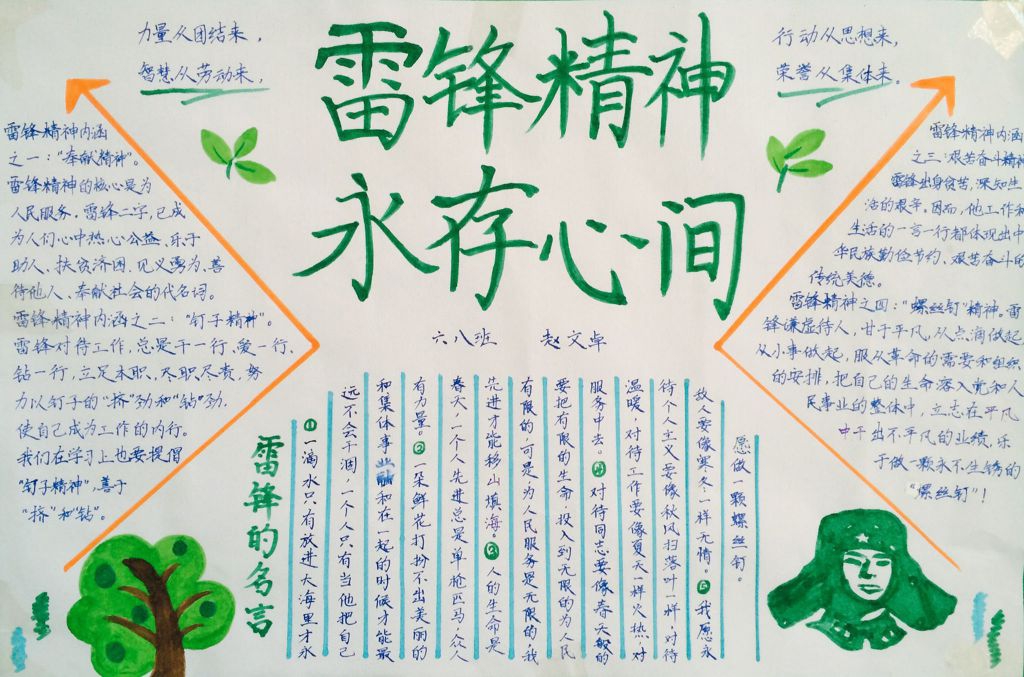 力量从团结来，
智慧从劳动来，
雷锋精神
永存心间
行动从思想来，
荣誉从集体来。
六八班 赵文卓
雷锋精神内涵
之一："奉献精神"。
雷锋精神的核心是为
人民服务。雷锋二字，已成
为人们心中热心公益、乐于
助人、扶贫济困、见义勇为、善
待他人、奉献社会的代名词。
雷锋精神内涵之二："钉子精神"。
雷锋对待工作，总是干一行、爱一行、
钻一行，立足本职、尽职尽责，努
力以钉子的"挤"劲和"钻"劲，
使自己成为工作的内行。
我们在学习上也要提倡
"钉子精神"，善于
"挤"和"钻"。
雷锋精神内涵
之三：艰苦奋斗精神
雷锋出身贫苦，深知生
活的艰辛。因而，他工作和
生活的一言一行都体现出中
华民族勤俭节约、艰苦奋斗的
传统美德。
雷锋精神之四："螺丝钉"精神。雷
锋谦虚待人，甘于平凡，从点滴做起
从小事做起，服从革命的需要和组织
的安排，把自己的生命溶入党和人
民事业的整体中，立志在平凡
中干出不平凡的业绩，乐
于做一颗永不生锈的
"螺丝钉"！
雷锋的名言
①一滴水只有放进大海里才永
远不会干涸，一个人只有当他把自己
和集体事业融和在一起的时候才能最
有力量。②一朵鲜花打扮不出美丽的
春天，一个人先进总是单枪匹马，众人
先进才能移山填海。③人的生命是
有限的，可是，为人民服务是无限的，我
要把有限的生命，投入到无限的为人民
服务中去。④对待同志要像春天般的
温暖，对待工作要像夏天一样火热，对
待个人主义要像秋风扫落叶一样，对待
敌人要像寒冬一样无情。⑤我愿永
愿做一颗螺丝钉。